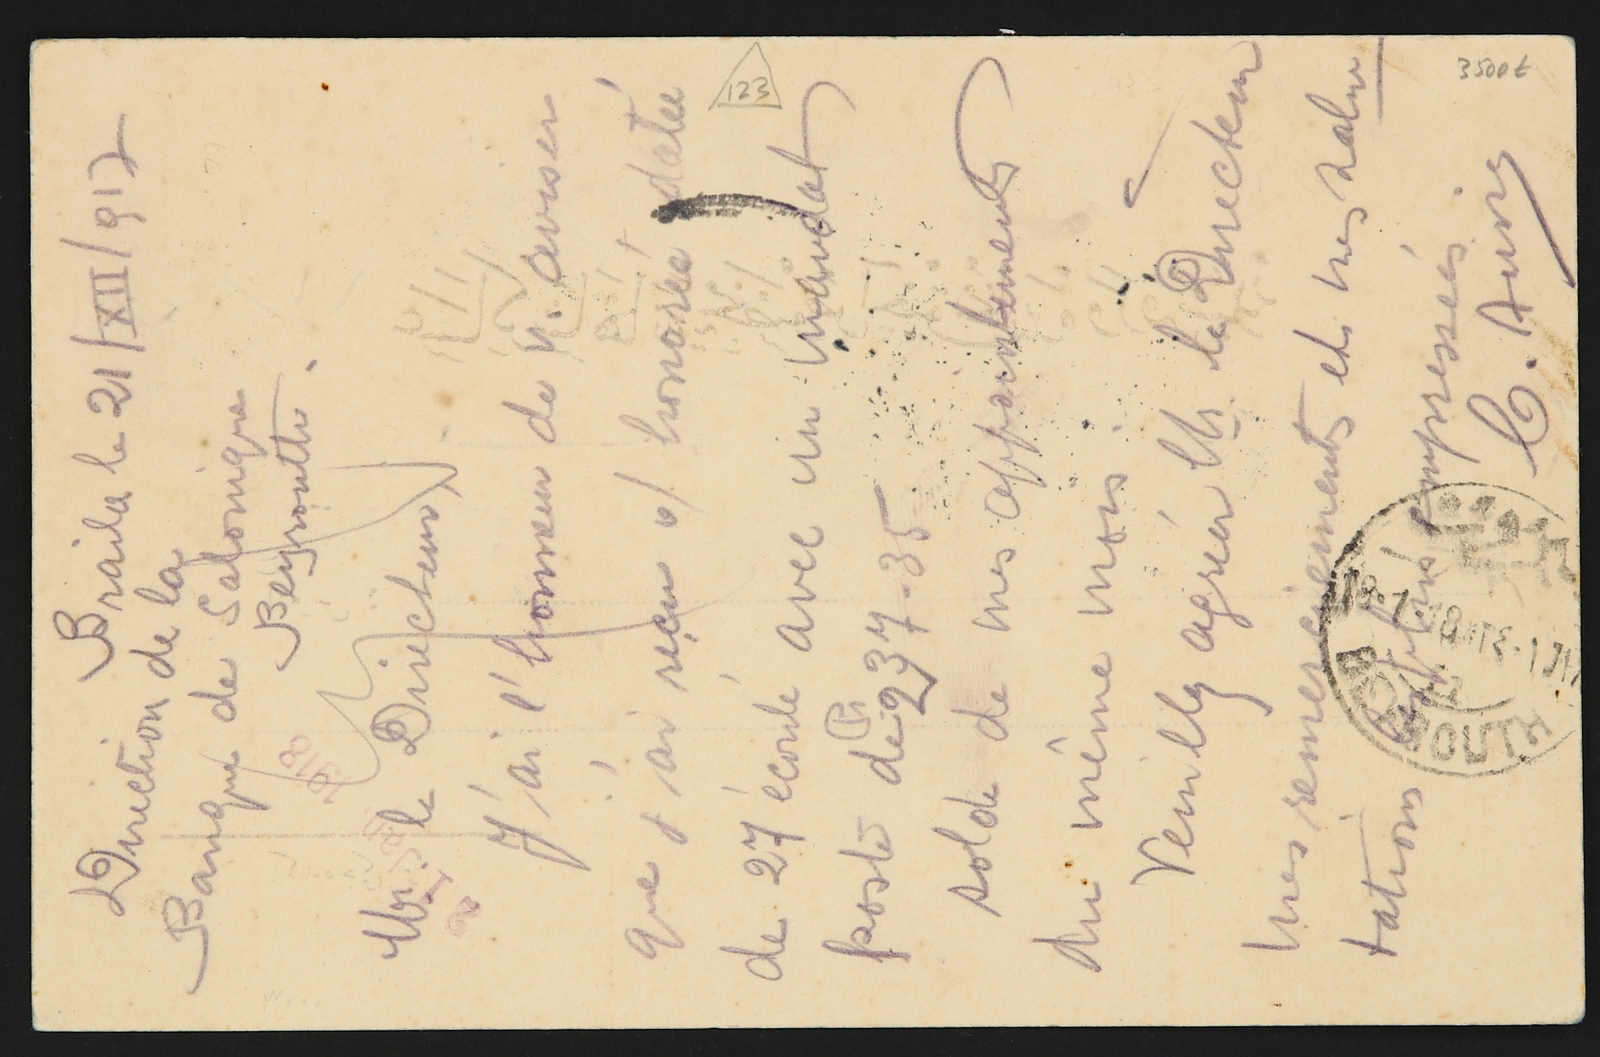 Braila le 21/XII/917
Direction de la
Banque de Salonique
Beyrouth.
Mr. le Directeur,
J'ai l'honneur de v. aviser
que j'ai reçu v/ honorée datée
de 27 écoulé avec un mandat
poste de 237.35
solde de mes appointements
du même mois
Veuillez agréer Mr. le Directeur
mes remerciements et mes salu
tations les plus empressées
C.
123
3500t
BEYROUTH